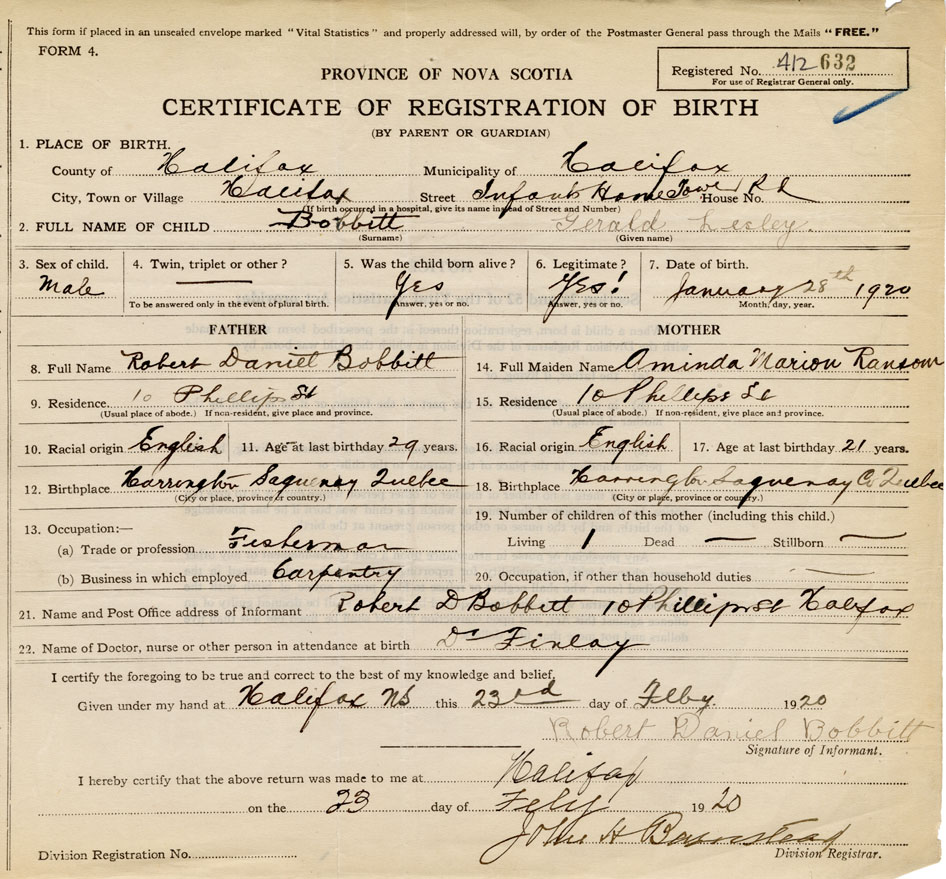 This form if placed in an unsealed envelope marked "Vital Statistics" and properly addressed will, by order of the Postmaster General pass through the Mails "FREE."
FORM 4.
Registered No. 412 632
For use of Registrar General only.
PROVINCE OF NOVA SCOTIA
CERTIFICATE OF REGISTRATION OF BIRTH
(BY PARENT OR GUARDIAN)
1. PLACE OF BIRTH.
County of Halifax Municipality of Halifax
City, Town or Village Halifax Street Infants Home Tower Rd House No.
(If birth occurred in a hospital, give its name instead of Street and Number)
2. FULL NAME OF CHILD Bobbitt Gerald Lesley.
(Surname) (Given name)
3. Sex of child. 4. Twin, triplet or other? 5. Was the child born alive? 6. Legitimate? 7. Date of birth.
Male — Yes Yes! January 28th 1920
To be answered only in the event of plural birth. Answer, yes or no. Answer, yes or no. Month, day, year.
FATHER MOTHER
8. Full Name Robert Daniel Bobbitt 14. Full Maiden Name Aminda Marion Ransom
9. Residence. 10 Phillips St 15. Residence 10 Phillips St
(Usual place of abode.) If non-resident, give place and province. (Usual place of abode.) If non-resident, give place and province.
10. Racial origin English 11. Age at last birthday 29 years. 16. Racial origin English 17. Age at last birthday 21 years.
12. Birthplace Harrington Saguenay Quebec 18. Birthplace Harrington Saguenay Co Quebec
(City or place, province or country.) (City or place, province or country.)
13. Occupation:— 19. Number of children of this mother (including this child.)
(a) Trade or profession Fisherman Living 1 Dead — Stillborn —
(b) Business in which employed Carpentry 20. Occupation, if other than household duties —
21. Name and Post Office address of Informant Robert D Bobbitt 10 Phillips St Halifax
22. Name of Doctor, nurse or other person in attendance at birth Dr Finlay
I certify the foregoing to be true and correct to the best of my knowledge and belief.
Given under my hand at Halifax NS this 23rd day of Feby. 1920
Robert Daniel Bobbitt
Signature of Informant.
I hereby certify that the above return was made to me at Halifax
on the 23 day of Feby 1920
John H Barnstead
Division Registration No. Division Registrar.